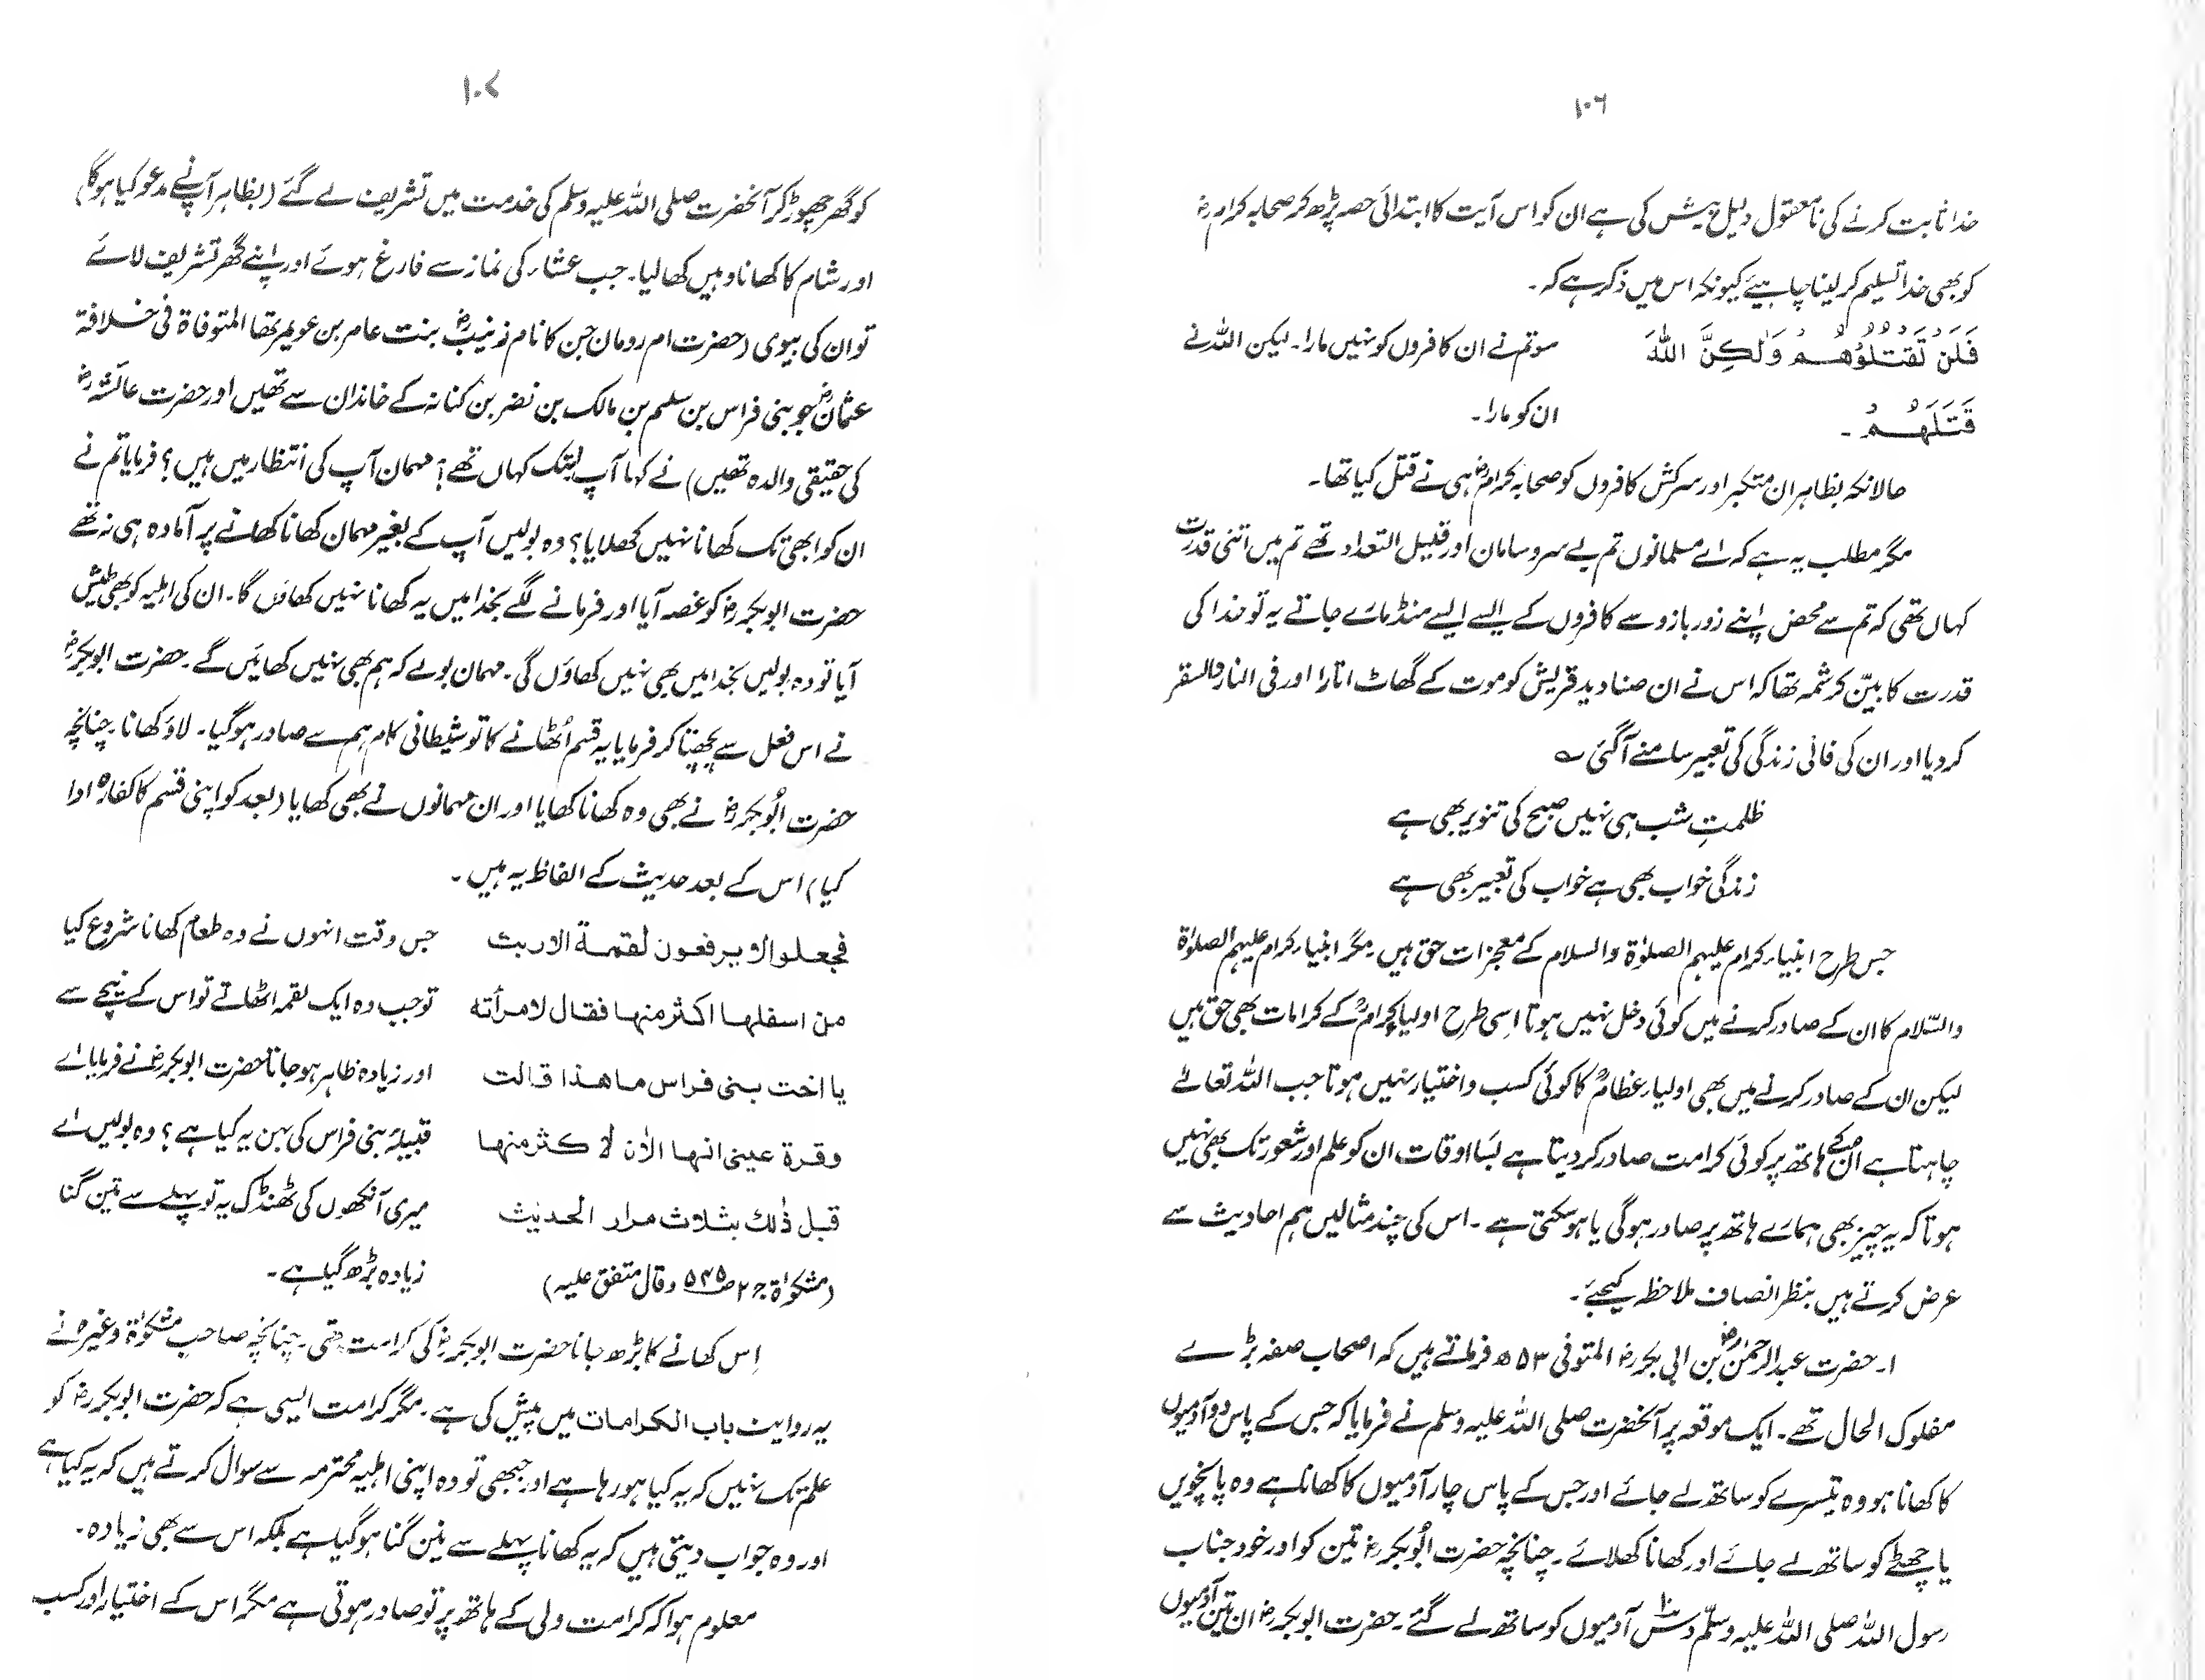 ۱۰۶
خدا ثابت کرنے کی نامعقول دلیل پیش کی ہے ان کو اس آیت کا ابتدائی حصہ پڑھ کر صحابہ کرامؓ
کو بھی خدا تسلیم کر لینا چاہیئے کیونکہ اس میں ذکر ہے کہ۔
فَلَمْ تَقْتُلُوْهُمْ وَلٰكِنَّ اللهَ سو تم نے ان کافروں کو نہیں مارا۔ لیکن اللہ نے
قَتَلَهُمْ ۔ ان کو مارا۔
حالانکہ بظاہر ان متکبر اور سرکش کافروں کو صحابہ کرامؓ ہی نے قتل کیا تھا۔
مگر مطلب یہ ہے کہ اے مسلمانوں تم بے سروسامان اور قلیل التعداد تھے تم میں اتنی قدرت
کہاں تھی کہ تم سے محض اپنے زور بازو سے کافروں کے ایسے ایسے منڈ مارے جاتے یہ تو خدا کی
قدرت کا بیّن کرشمہ تھا کہ اس نے ان صنادید قریش کو موت کے گھاٹ اتارا اور فی النار والسقر
کر دیا اور ان کی فانی زندگی کی تعبیر سامنے آگئی ؎
ظلمتِ شب ہی نہیں صبح کی تنویر بھی ہے
زندگی خواب بھی ہے خواب کی تعبیر بھی ہے
جس طرح انبیاء کرام علیہم الصلوٰۃ والسلام کے معجزات حق ہیں۔ مگر انبیاء کرام علیہم الصلوٰۃ
والسّلام کا ان کے صادر کرنے میں کوئی دخل نہیں ہوتا اِسی طرح اولیاء کرامؒ کے کرامات بھی حق ہیں
لیکن ان کے صادر کرنے میں بھی اولیاء عظامؒ کا کوئی کسب و اختیار نہیں ہوتا جب اللہ تعالےٰ
چاہتا ہے ان کے ہاتھ پر کوئی کرامت صادر کر دیتا ہے بسا اوقات ان کو علم اور شعور تک بھی نہیں
ہوتا کہ یہ چیز بھی ہمارے ہاتھ پر صادر ہو گی یا ہو سکتی ہے۔ اس کی چند مثالیں ہم احادیث سے
عرض کرتے ہیں بنظر انصاف ملاحظہ کیجئے۔
۱۔ حضرت عبدالرحمٰنؓ بن ابی بکرؓ المتوفی ۵۳ھ فرماتے ہیں کہ اصحاب صفہ بڑے
مفلوک الحال تھے۔ ایک موقعہ پر آنحضرت صلی اللہ علیہ وسلم نے فرمایا کہ جس کے پاس دو آدمیوں
کا کھانا ہو وہ تیسرے کو ساتھ لے جائے اور جس کے پاس چار آدمیوں کا کھانا ہے وہ پانچویں
یا چھٹے کو ساتھ لے جائے اور کھانا کھلائے۔ چنانچہ حضرت ابُوبکرؓ تین کو اور خود جناب
رسول اللہ صلی اللہ علیہ وسلّم دس۱۰ آدمیوں کو ساتھ لے گئے۔ حضرت ابوبکرؓ ان تین آدمیوں
۱۰۷
کو گھر چھوڑ کر آنحضرت صلی اللہ علیہ وسلم کی خدمت میں تشریف لے گئے (بظاہر آپ نے مدعو کیا ہوگا)
اور شام کا کھانا وہیں کھا لیا۔ جب عشاء کی نماز سے فارغ ہوئے اور اپنے گھر تشریف لائے
تو ان کی بیوی (حضرت ام رومان جن کا نام زینبؓ بنت عامر بن عویمر تھا المتوفاۃ فی خلافۃ
عثمانؓ جو بنی فراس بن سلیم بن مالک بن نضر بن کنانہ کے خاندان سے تھیں اور حضرت عائشہؓ
کی حقیقی والدہ تھیں) نے کہا آپ ابتک کہاں تھے؟ مہمان آپ کی انتظار میں ہیں؟ فرمایا تم نے
ان کو ابھی تک کھانا نہیں کھلایا؟ وہ بولیں آپ کے بغیر مہمان کھانا کھانے پر آمادہ ہی نہ تھے
حضرت ابوبکرؓ کو غصہ آیا اور فرمانے لگے بخدا میں یہ کھانا نہیں کھاؤں گا۔ ان کی اہلیہ کو بھی طیش
آیا تو وہ بولیں بخدا میں بھی نہیں کھاؤں گی۔ مہمان بولے کہ ہم بھی نہیں کھائیں گے۔ حضرت ابوبکرؓ
نے اس فعل سے پچھتا کر فرمایا یہ قسم اُٹھانے کا تو شیطانی کام ہم سے صادر ہو گیا۔ لاؤ کھانا۔ چنانچہ
حضرت ابُوبکرؓ نے بھی وہ کھانا کھایا اور ان مہمانوں نے بھی کھایا (بعد کو اپنی قسم کا کفارہ ادا
کیا) اس کے بعد حدیث کے الفاظ یہ ہیں۔
فجعلوا لا يرفعون لقمة الا ربت جس وقت انہوں نے وہ طعام کھانا شروع کیا
من اسفلها اكثر منها فقال لامرأته تو جب وہ ایک لقمہ اٹھاتے تو اس کے نیچے سے
يا اخت بنى فراس ما هذا قالت اور زیادہ ظاہر ہو جاتا حضرت ابوبکرؓ نے فرمایا اے
وقرة عينى انها الاٰن لا كثر منها قبیلۂ بنی فراس کی بہن یہ کیا ہے؟ وہ بولیں اے
قبل ذٰلك بثلاث مرار الحديث میری آنکھوں کی ٹھنڈک یہ تو پہلے سے تین گنا
(مشکوٰۃ ج۲ ص۵۴۵ وقال متفق علیہ) زیادہ بڑھ گیا ہے۔
اِس کھانے کا بڑھ جانا حضرت ابوبکرؓ کی کرامت تھی۔ چنانچہ صاحب مشکوٰۃ وغیرہ نے
یہ روایت باب الکرامات میں پیش کی ہے۔ مگر کرامت ایسی ہے کہ حضرت ابوبکرؓ کو
علم تک نہیں کہ یہ کیا ہو رہا ہے اور جبھی تو وہ اپنی اہلیہ محترمہ سے سوال کرتے ہیں کہ یہ کیا ہے
اور وہ جواب دیتی ہیں کہ یہ کھانا پہلے سے تین گنا ہو گیا ہے بلکہ اس سے بھی زیادہ۔
معلوم ہوا کہ کرامت ولی کے ہاتھ پر تو صادر ہوتی ہے مگر اس کے اختیار اور کسب